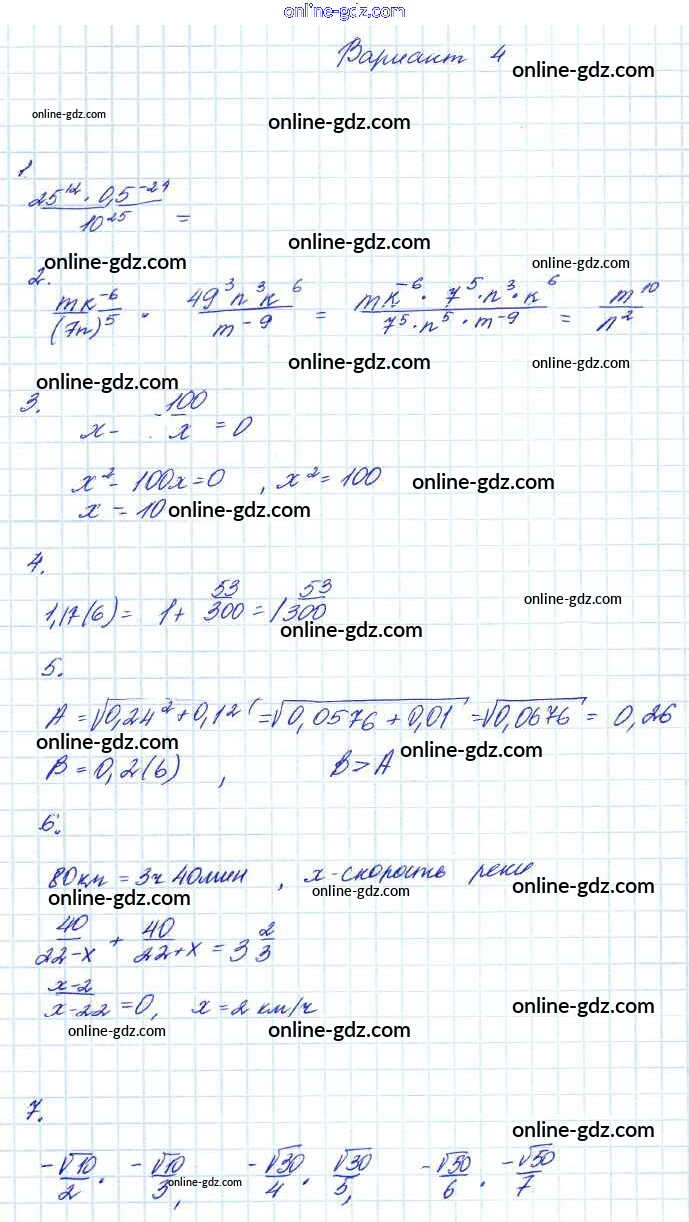 online-gdz.com
Вариант 4
online-gdz.com
online-gdz.com
online-gdz.com
1.
25^12 · 0,5^-24 / 10^25 =
online-gdz.com
online-gdz.com
online-gdz.com
2.
mk^-6 / (7n)^5 · 49^3 n^3 k^6 / m^-9 = mk^-6 · 7^5 · n^3 · k^6 / 7^5 · n^5 · m^-9 = m^10 / n^2
online-gdz.com
online-gdz.com
online-gdz.com
3.
x - 100 / x = 0
x^2 - 100x = 0 , x^2 = 100
online-gdz.com
x = 10
online-gdz.com
4.
1,17(6) = 1 + 53/300 = 1 53/300
online-gdz.com
online-gdz.com
5.
A = √0,24^2 + 0,1^2 = √0,0576 + 0,01 = √0,0676 = 0,26
online-gdz.com
online-gdz.com
B = 0,2(6) , B > A
6.
80км = 3ч 40мин , x - скорость реки
online-gdz.com
online-gdz.com
online-gdz.com
40 / 22-x + 40 / 22+x = 3 2/3
x-2 / x-22 = 0, x = 2 км/ч
online-gdz.com
online-gdz.com
online-gdz.com
7.
online-gdz.com
-√10 / 2 · -√10 / 3, -√30 / 4 · √30 / 5, -√50 / 6 · -√50 / 7
online-gdz.com